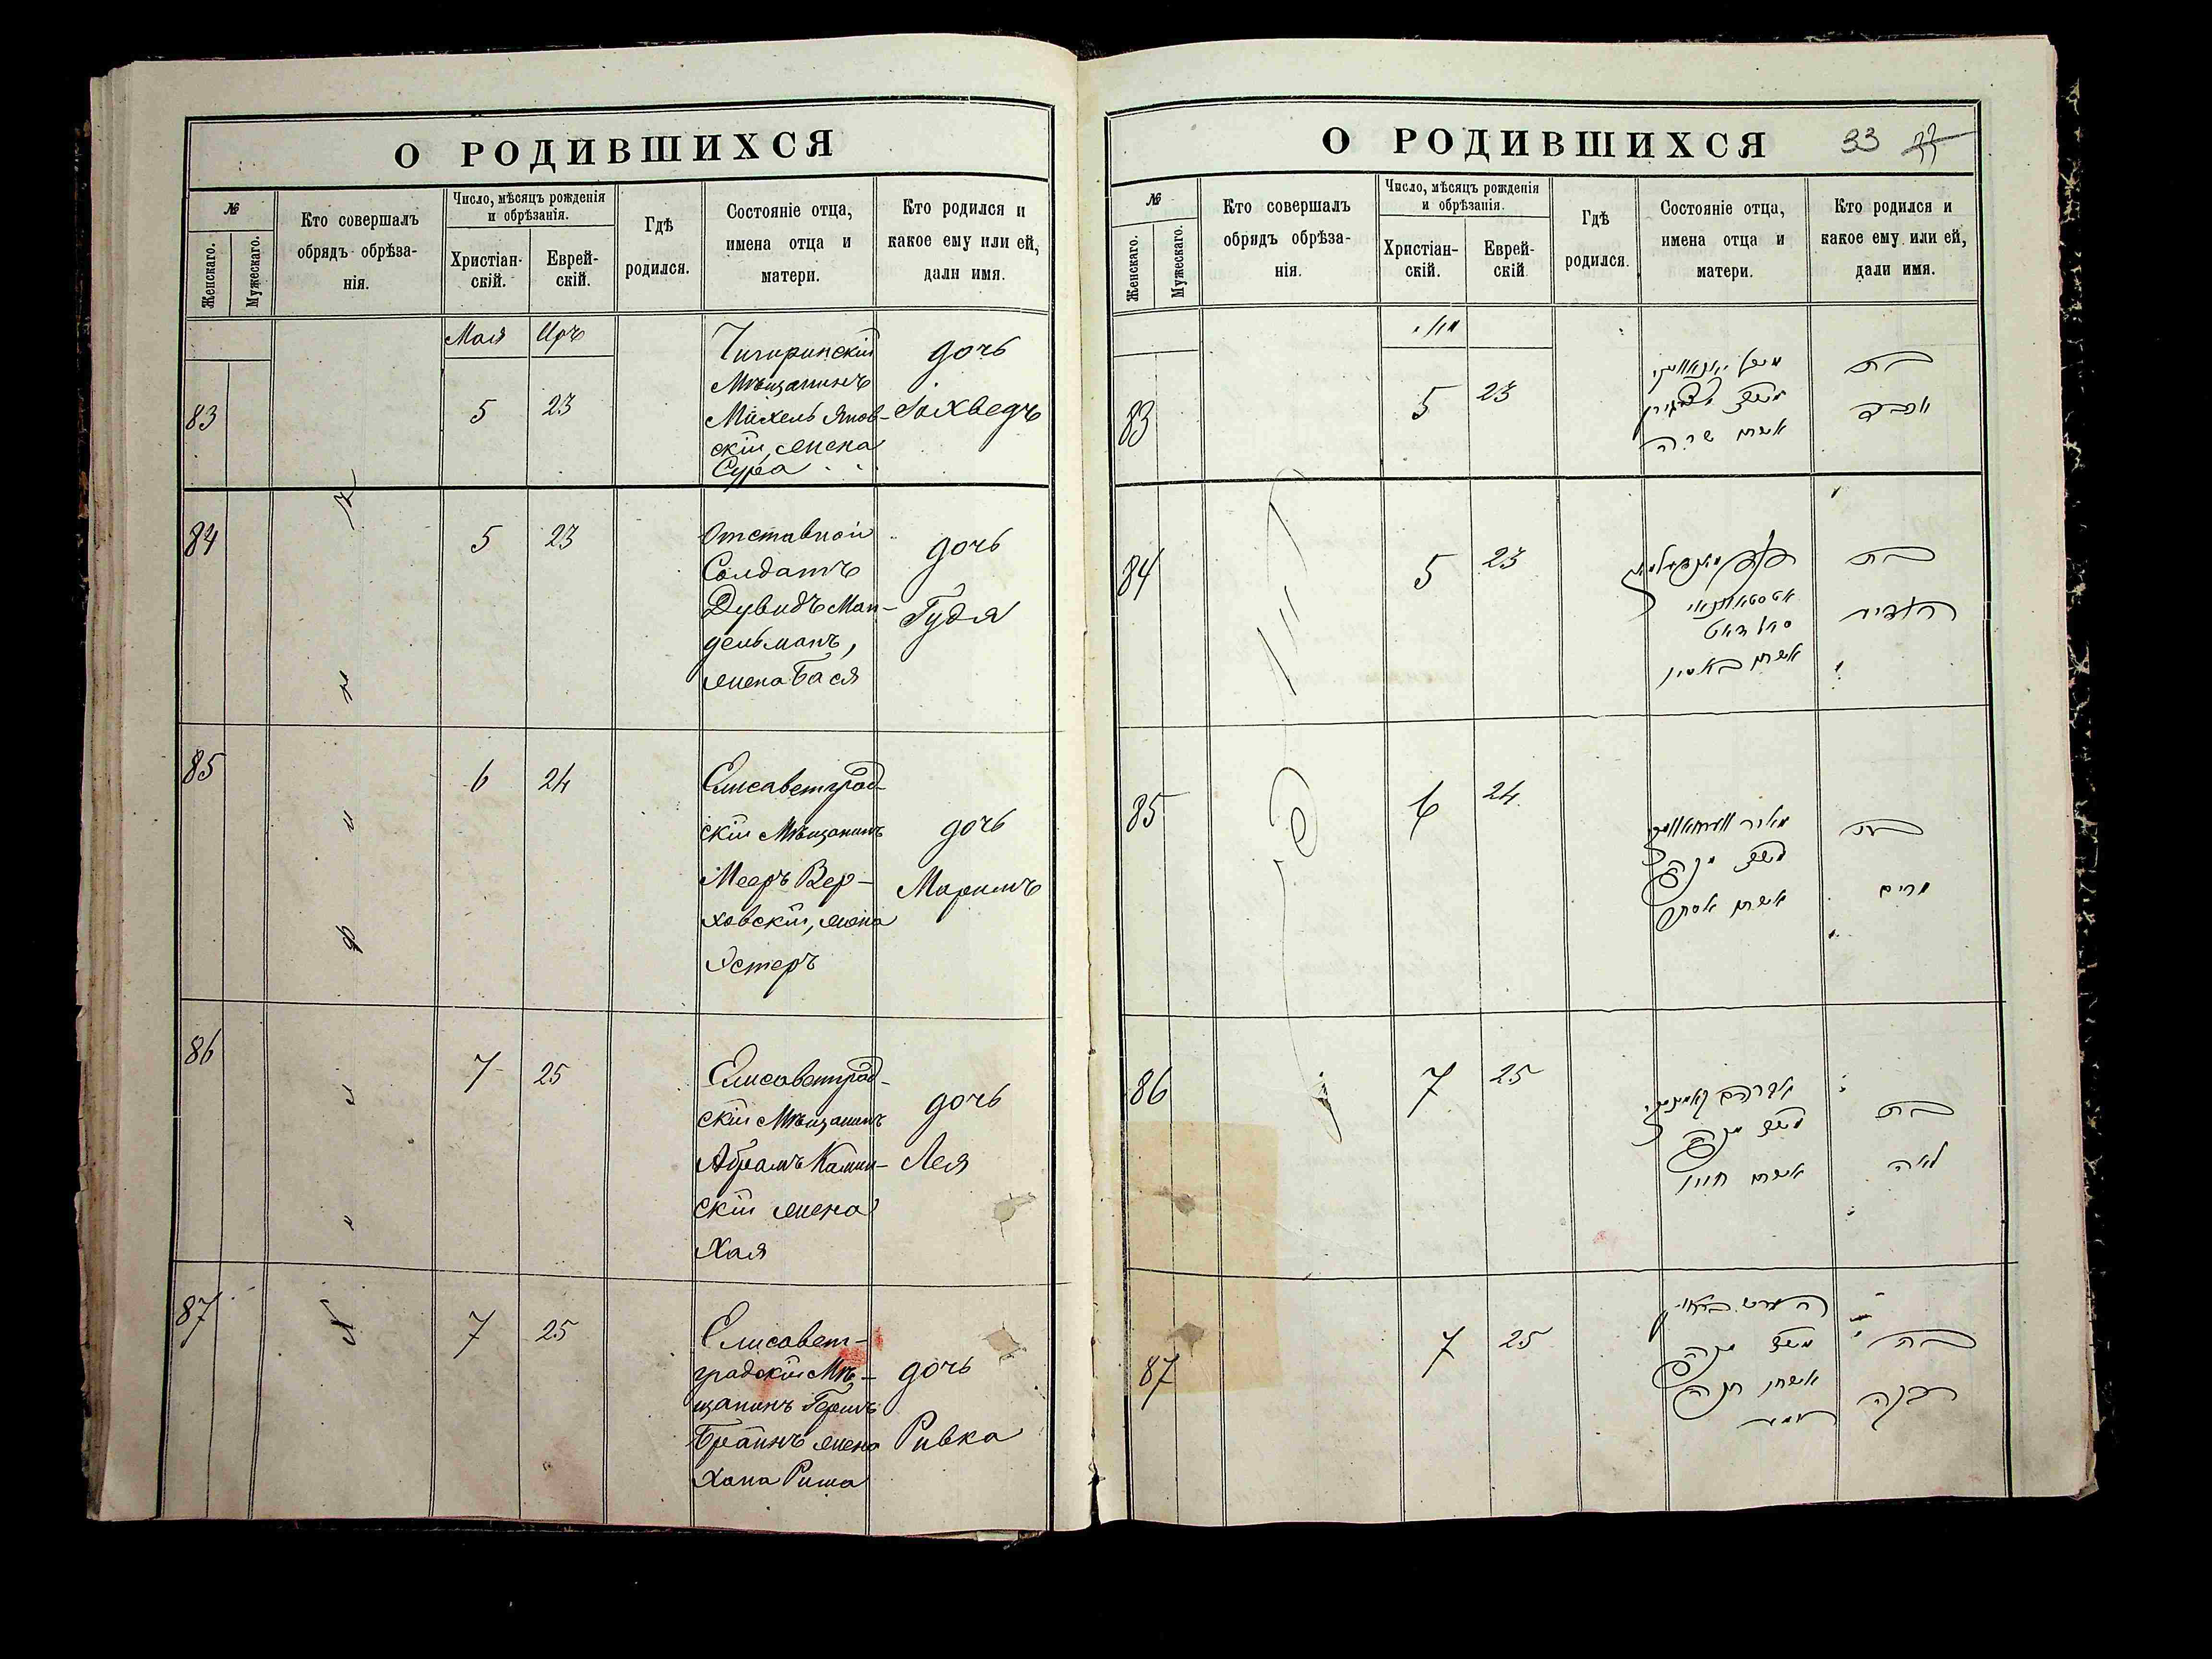 О РОДИВШИХСЯ
№
Женскаго.
Мужескаго.
Кто совершалъ
обрядъ обрѣза-
нія.
Число, мѣсяцъ рожденія
и обрѣзанія.
Христіан-
скій.
Еврей-
скій.
Гдѣ
родился.
Состояніе отца,
имена отца и
матери.
Кто родился и
какое ему или ей,
дали имя.
Мая Іръ
83
5 23
Чигиринскій
Мѣщанинъ
Михель Янов-
скій, жена
Сура
дочь
Іохведъ
84
5 23
Отставной
Солдатъ
Дувидъ Ман-
дельманъ,
жена Бася
дочь
Гудя
85
6 24
Елисаветград-
скій Мѣщанинъ
Мееръ Вер-
ховскій, жена
Эстеръ
дочь
Маріамъ
86
7 25
Елисаветград-
скій Мѣщанинъ
Абрамъ Камин-
скій жена
Хая
дочь
Лея
87
7 25
Елисавет-
градскій Мѣ-
щанинъ Гершъ
Браинъ жена
Хана Риша
дочь
Ривка
О РОДИВШИХСЯ
33
№
Женскаго.
Мужескаго.
Кто совершалъ
обрядъ обрѣза-
нія.
Число, мѣсяцъ рожденія
и обрѣзанія.
Христіан-
скій.
Еврей-
скій
Гдѣ
родился.
Состояніе отца,
имена отца и
матери.
Кто родился и
какое ему или ей,
дали имя.
מיי
83
5 23
אשתו שרה
בת
יוכבד
84
5 23
אשתו באסיא
בת
85
6 24
אשתו אסתר
בת
מרים
86
7 25
אברהם קאמינסקי
אשתו חייא
בת
לאה
87
7 25
אשתו חנה
בת
רבקה